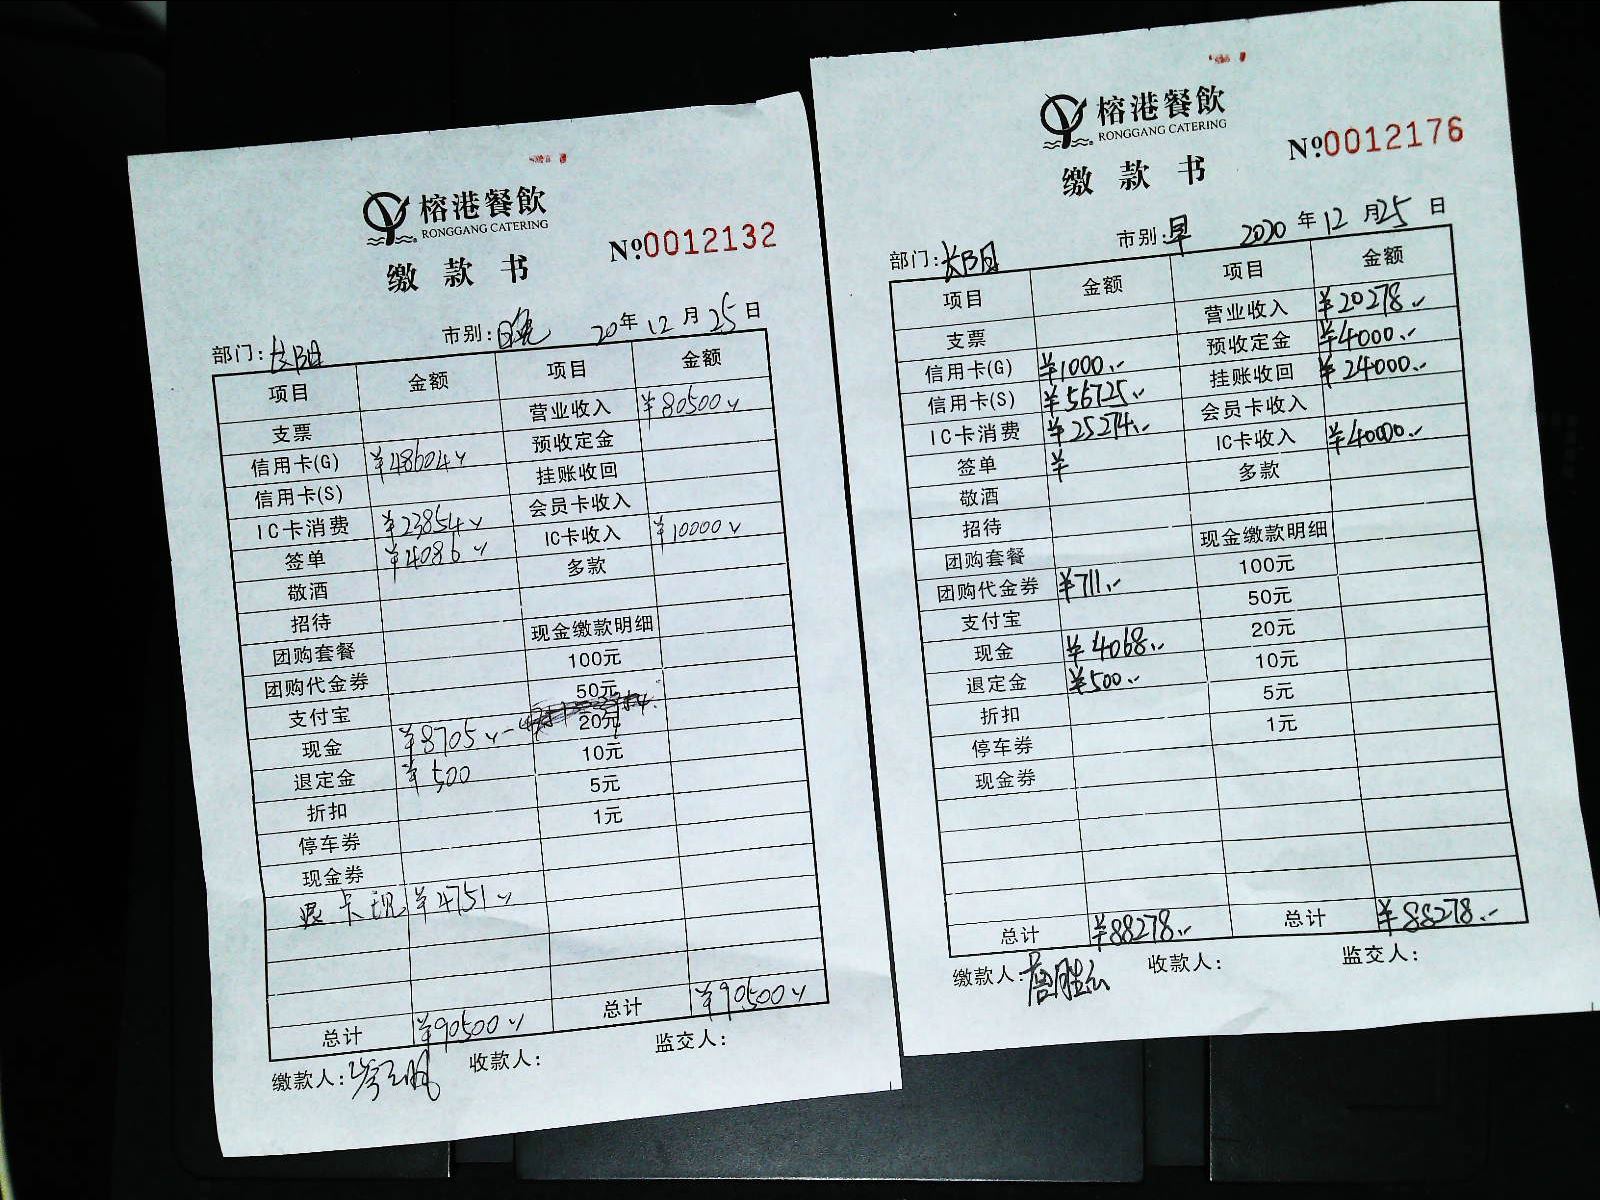 榕港餐飲
RONGGANG CATERING
缴款书
№0012132
部门:长阳 市别:晚 20年12月25日
项目 金额 项目 金额
支票 营业收入 ¥80500
信用卡(G) ¥48604 预收定金
信用卡(S) 挂账收回
IC卡消费 ¥23854 会员卡收入
签单 ¥4086 IC卡收入 ¥10000
敬酒 多款
招待
团购套餐 现金缴款明细
团购代金券 100元
支付宝 50元
现金 ¥8705 20元
退定金 ¥500 10元
折扣 5元
停车券 1元
现金券
退卡现 ¥4751
总计 ¥90500 总计 ¥90500
缴款人: 收款人: 监交人:
榕港餐飲
RONGGANG CATERING
缴款书
№0012176
部门:长阳 市别:早 2020年12月25日
项目 金额 项目 金额
支票 营业收入 ¥20278.-
信用卡(G) ¥1000.- 预收定金 ¥4000.-
信用卡(S) ¥56725.- 挂账收回 ¥24000.-
IC卡消费 ¥25274.- 会员卡收入
签单 ¥ IC卡收入 ¥40000.-
敬酒 多款
招待
团购套餐 现金缴款明细
团购代金券 ¥711.- 100元
支付宝 50元
现金 ¥4068.- 20元
退定金 ¥500.- 10元
折扣 5元
停车券 1元
现金券
总计 ¥88278.- 总计 ¥88278.-
缴款人: 收款人: 监交人: